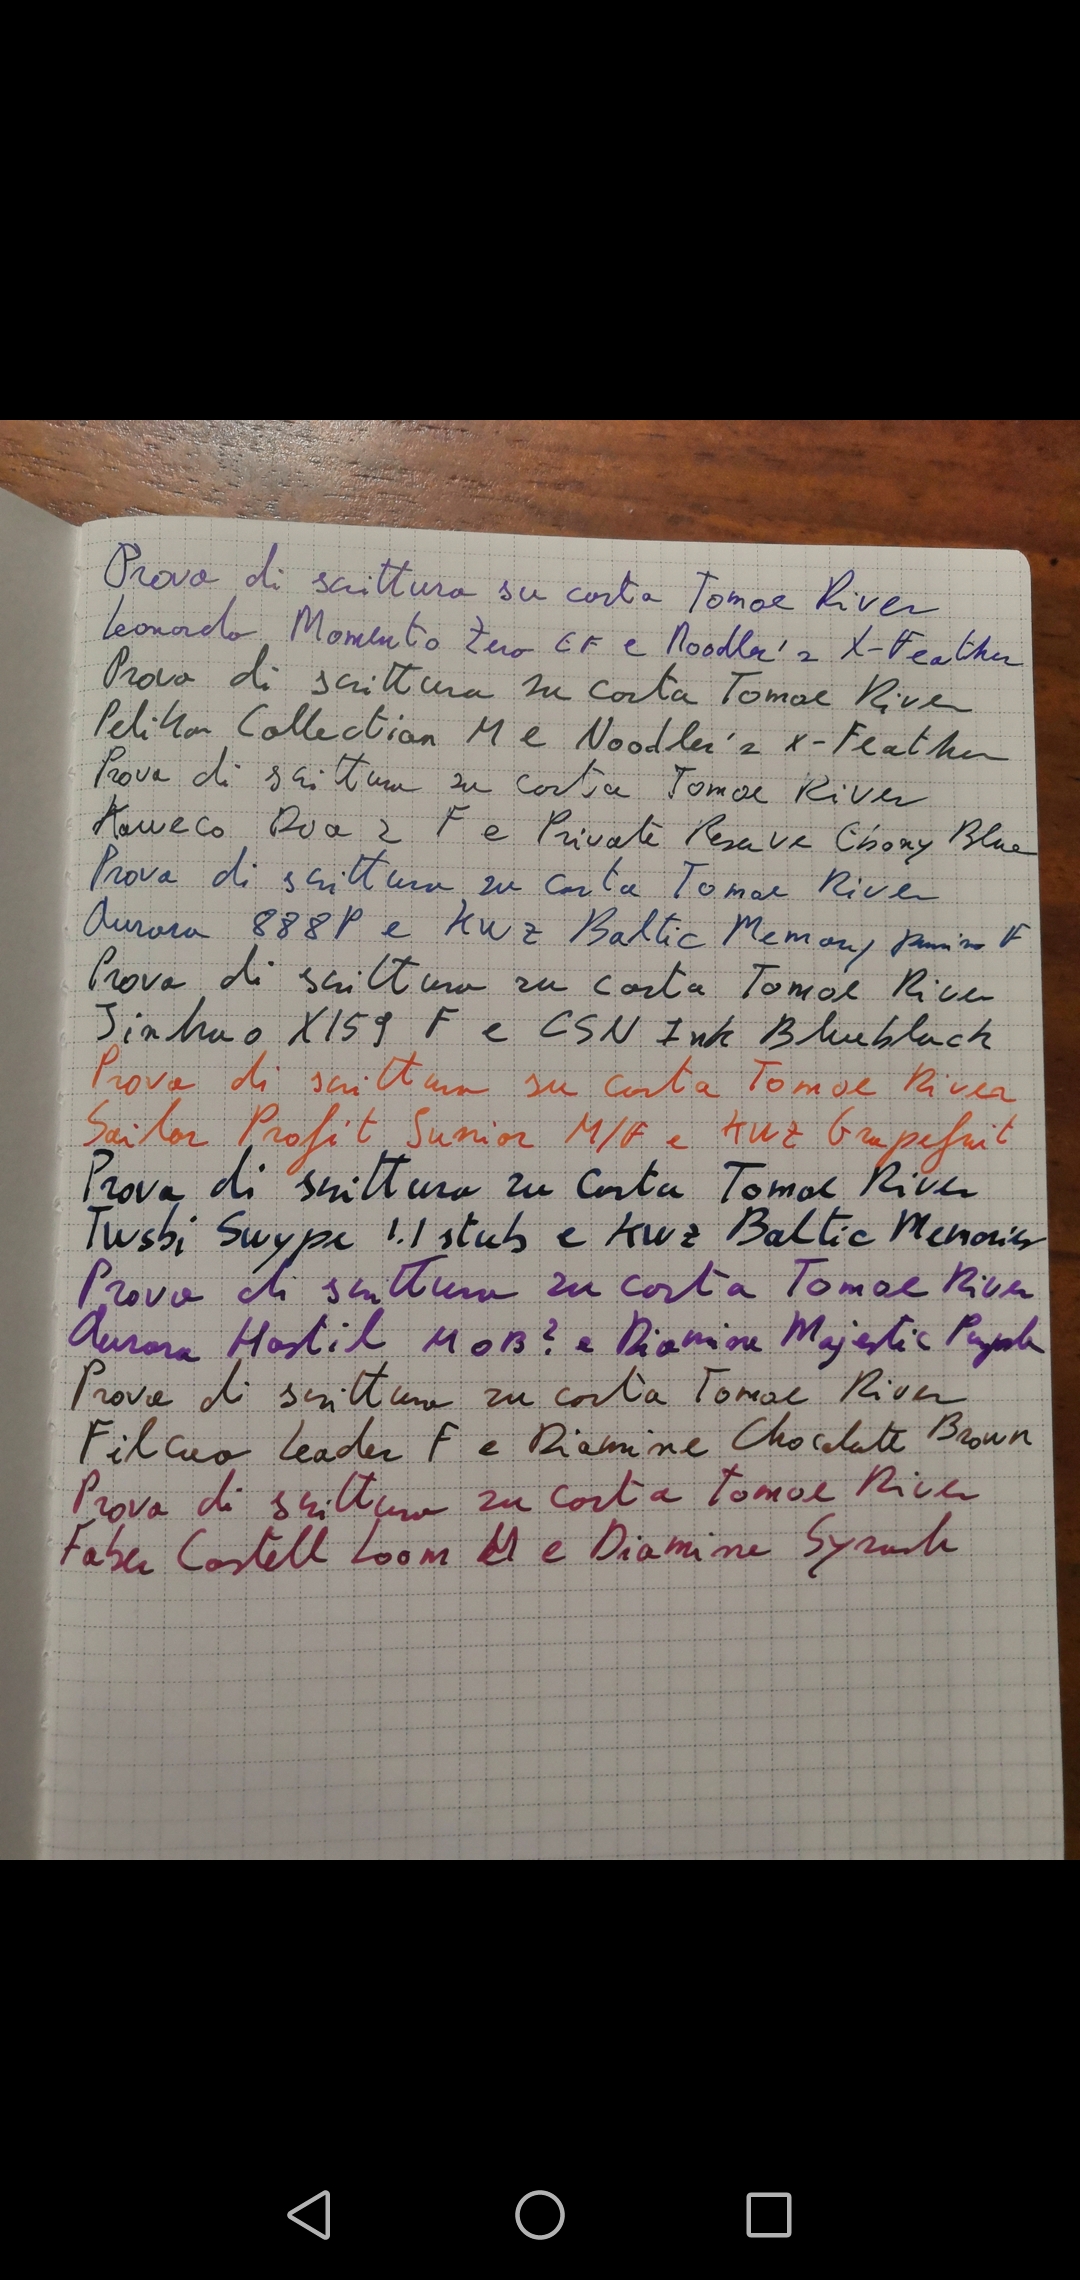 Prova di scrittura su carta Tomoe River
Leonardo Momento Zero EF e Noodler's X-Feather
Prova di scrittura su carta Tomoe River
Pelikan Collection M e Noodler's X-Feather
Prova di scrittura su carta Tomoe River
Kaweco Dia 2 F e Private Reserve Ebony Blue
Prova di scrittura su carta Tomoe River
Aurora 888P e KWZ Baltic Memory pennino F
Prova di scrittura su carta Tomoe River
Jinhao X159 F e CSN Ink Blueblack
Prova di scrittura su carta Tomoe River
Sailor Profit Junior M/F e KWZ Grapefruit
Prova di scrittura su carta Tomoe River
Twsbi Swype 1.1 stub e KWZ Baltic Memories
Prova di scrittura su carta Tomoe River
Aurora Hastil M o B? e Diamine Majestic Purple
Prova di scrittura su carta Tomoe River
Filcao Leader F e Diamine Chocolate Brown
Prova di scrittura su carta Tomoe River
Faber Castell Loom M e Diamine Syrah